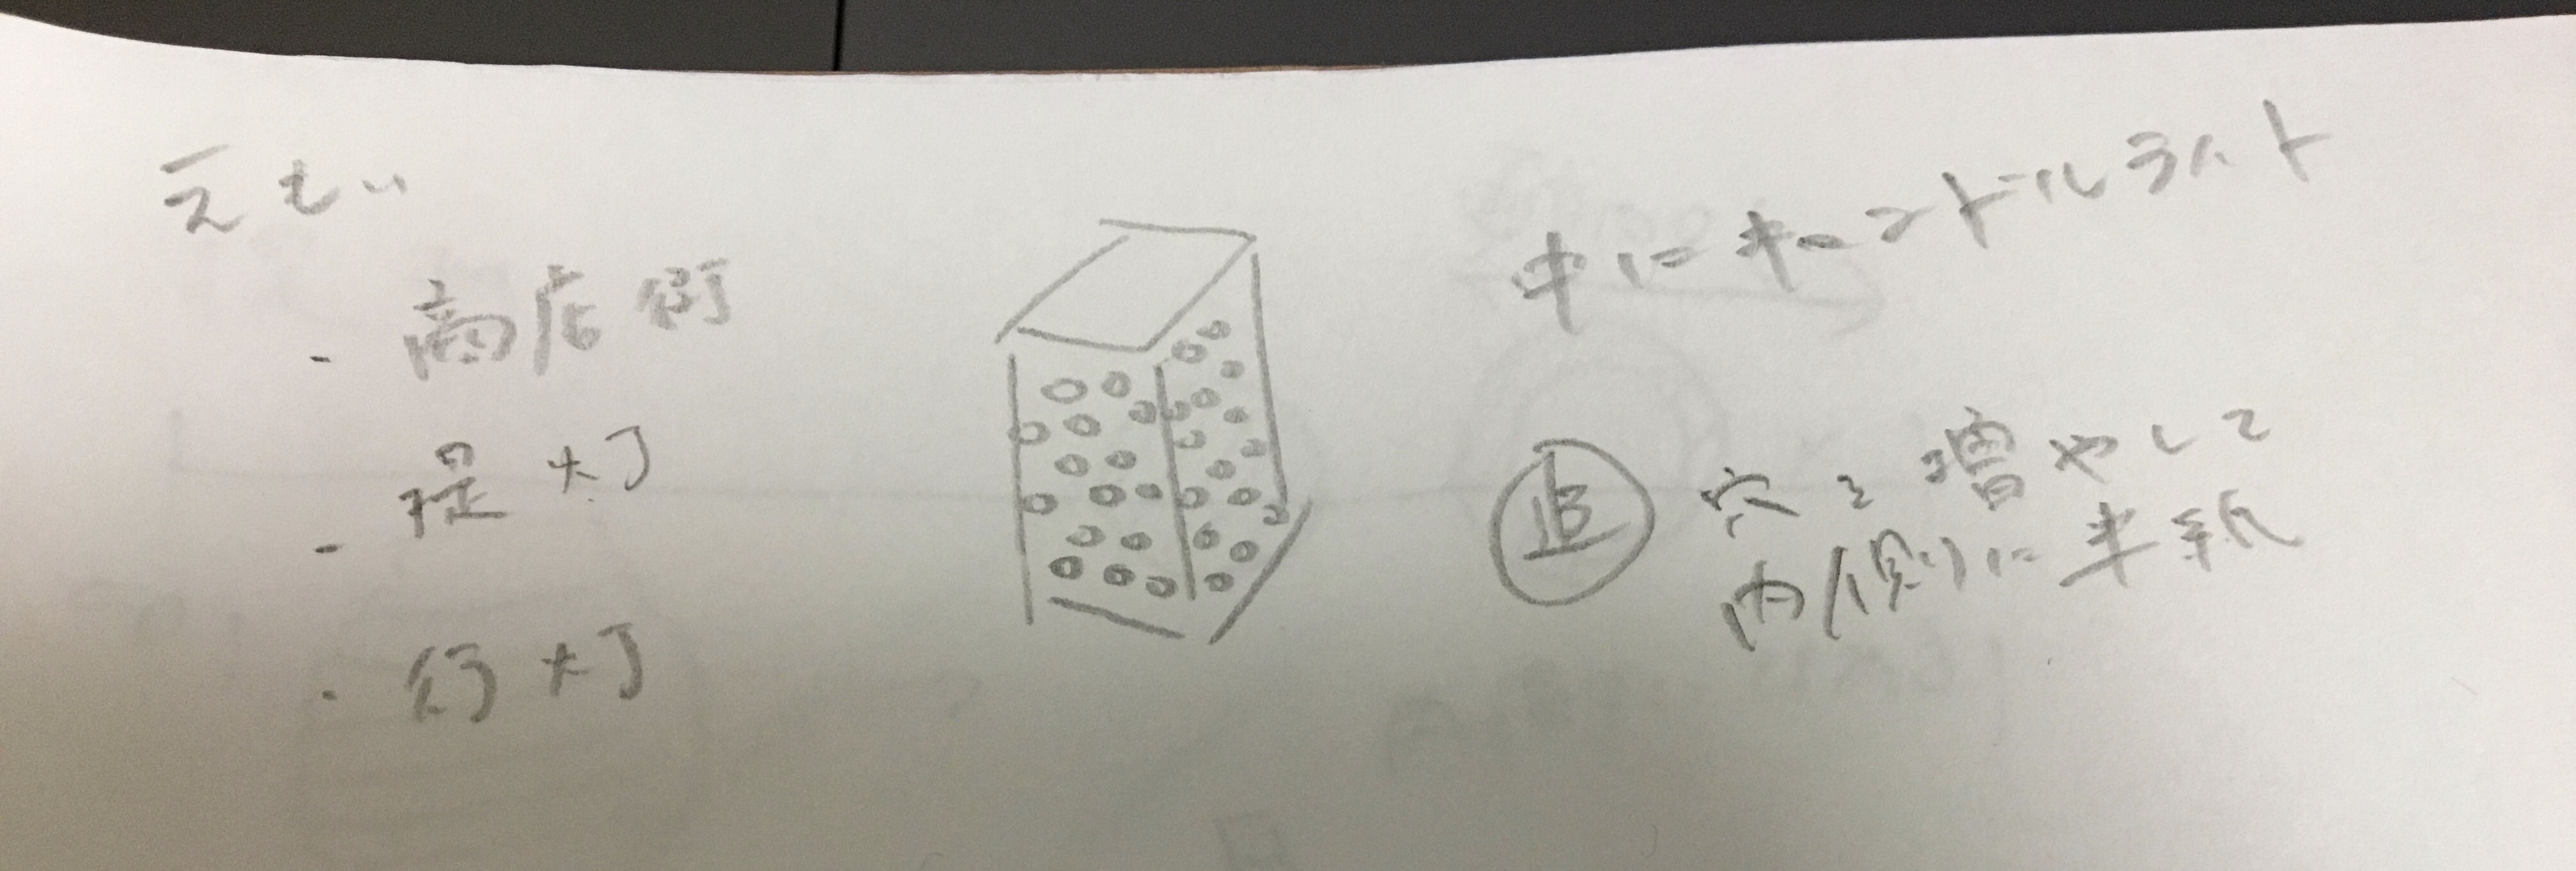 えもい
・商店街
・提灯
・幻灯
中にキャンドルライト
追 穴を増やして
内側に半紙